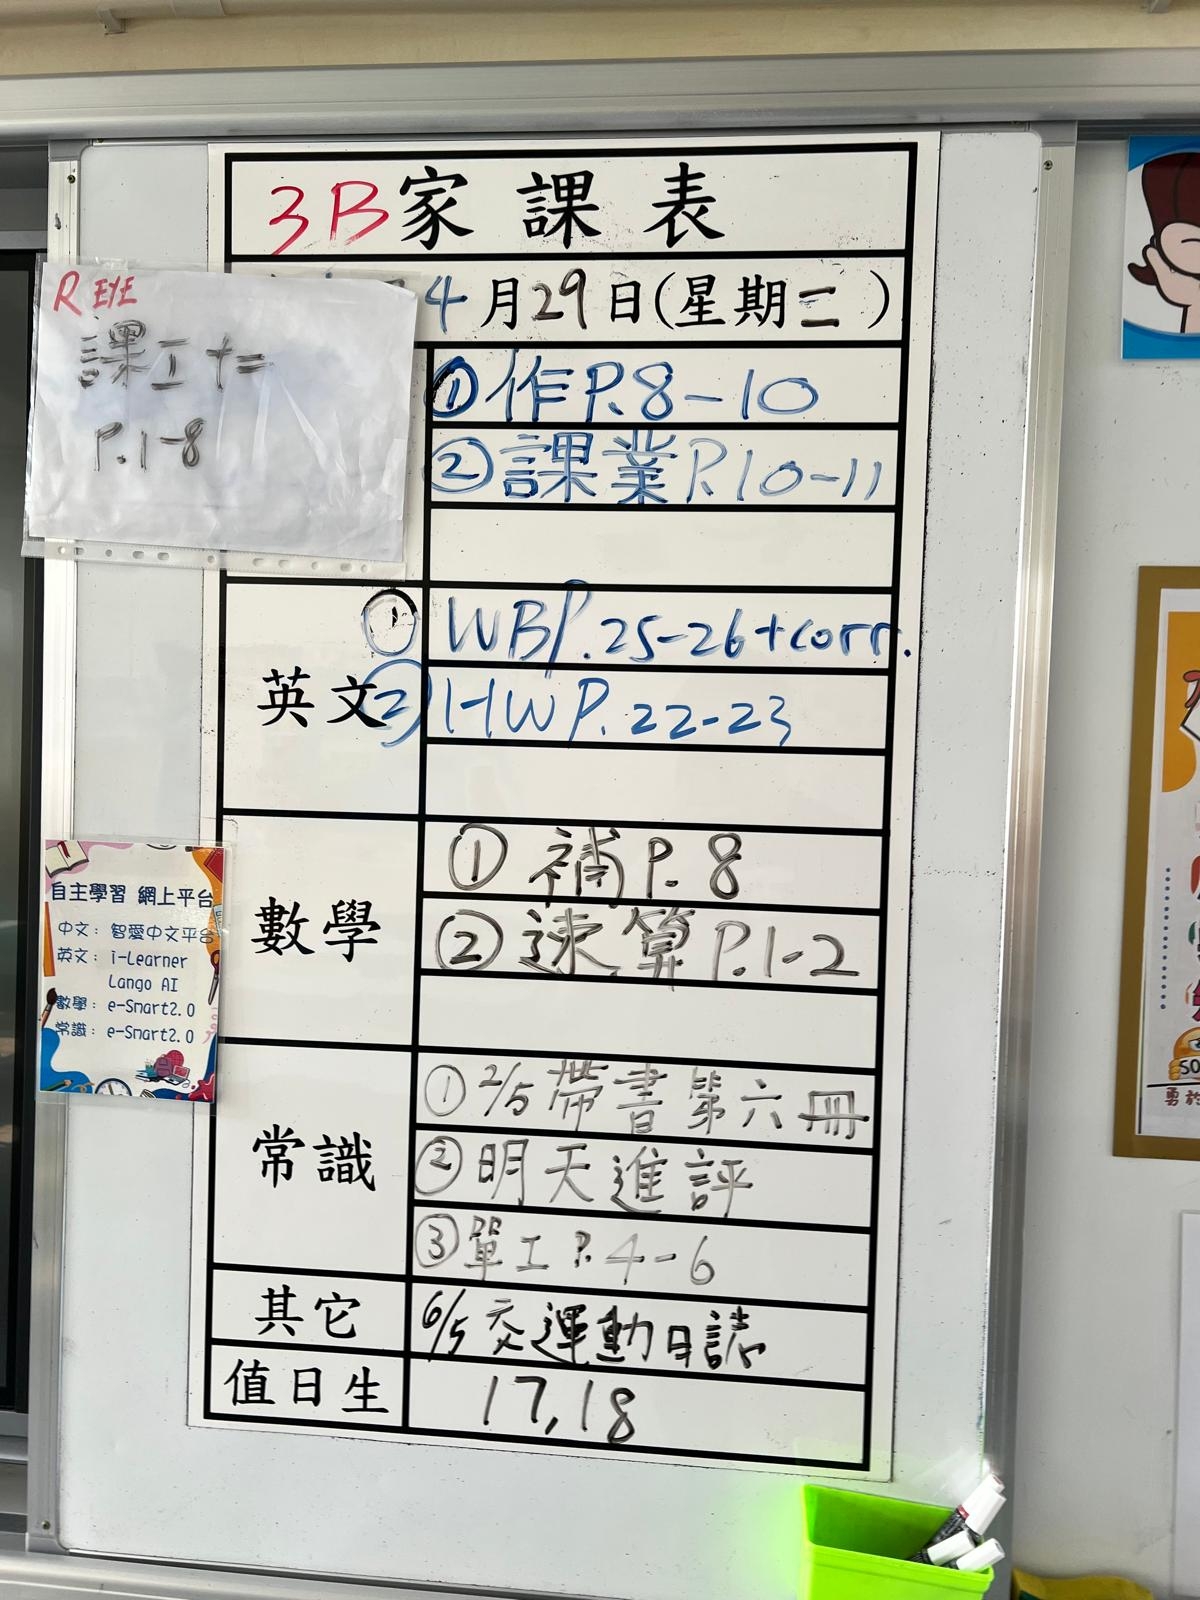 3B家課表
4月29日(星期二)
R EYE
課工十二
P.1-8
①作P.8-10
②課業P.10-11
英文
①WBP.25-26+corr.
②HWP.22-23
數學
①補P.8
②速算P.1-2
自主學習 網上平台
中文：智愛中文平台
英文：i-Learner
Lango AI
數學：e-Smart2.0
常識：e-Smart2.0
常識
①2/5帶書第六冊
②明天進評
③單工P.4-6
其它
6/5交運動日誌
值日生
17,18
SO